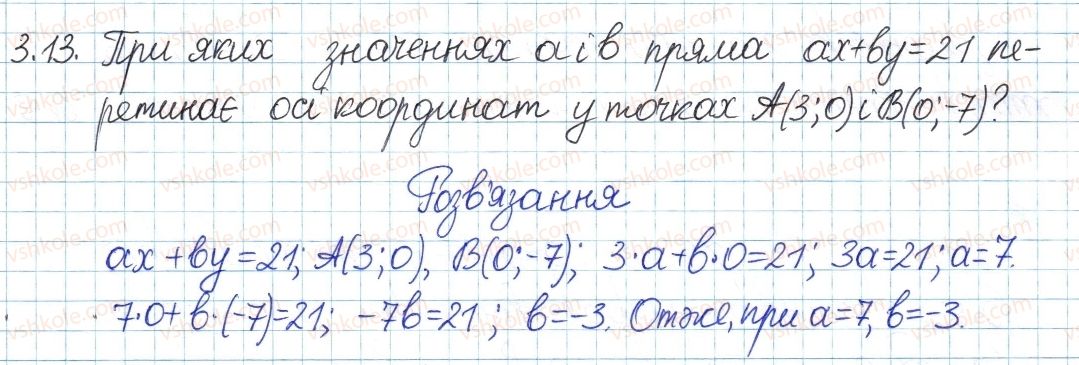 3.13. При яких значеннях a і в пряма ax+вy=21 пе-
ретинає осі координат у точках A(3;0) і B(0;-7)?
Розв'язання
ax+вy=21; A(3;0), B(0;-7); 3·a+в·0=21; 3a=21; a=7.
7·0+в·(-7)=21; -7в=21; в=-3. Отже, при a=7, в=-3.